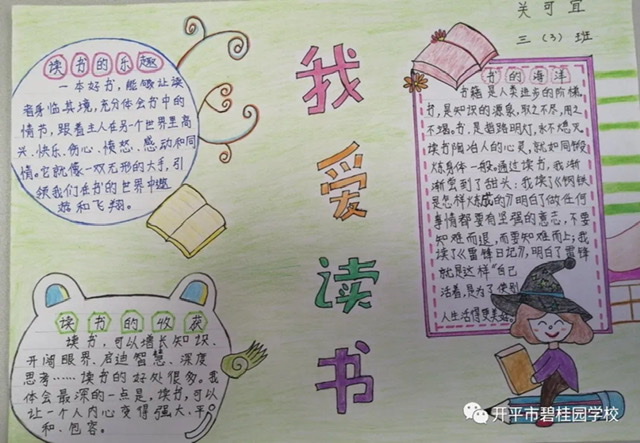 关可宜
三（3）班
我爱读书
读书的乐趣
一本好书，能够让读
者身临其境，充分体会书中的
情节，跟着主人在另个世界里高
兴、快乐、伤心、愤怒、感动和同
情。它就像一双无形的大手，引
领我们在书的世界中遨
游和飞翔。
书的海洋
书籍是人类进步的阶梯，
书，是知识的源泉，取之不尽，用之
不竭。书，是指路明灯，永不熄灭。
读书陶冶人的心灵，就如同锻
炼身体一般。通过读书，我渐
渐尝到了甜头：我读了《钢铁
是怎样炼成的》明白了做任何
事情都要有坚强的意志，不要
知难而退，而要知难而上；我
读了《雷锋日记》，明白了雷锋
就是这样"自己
活着，是为了使别
人生活得更美好
读书的收获
读书，可以增长知识、
开阔眼界、启迪智慧、深度
思考……读书的好处很多。我
体会最深的一点是，读书，可以
让一个人内心变得强大、平
和、包容。
开平市碧桂园学校